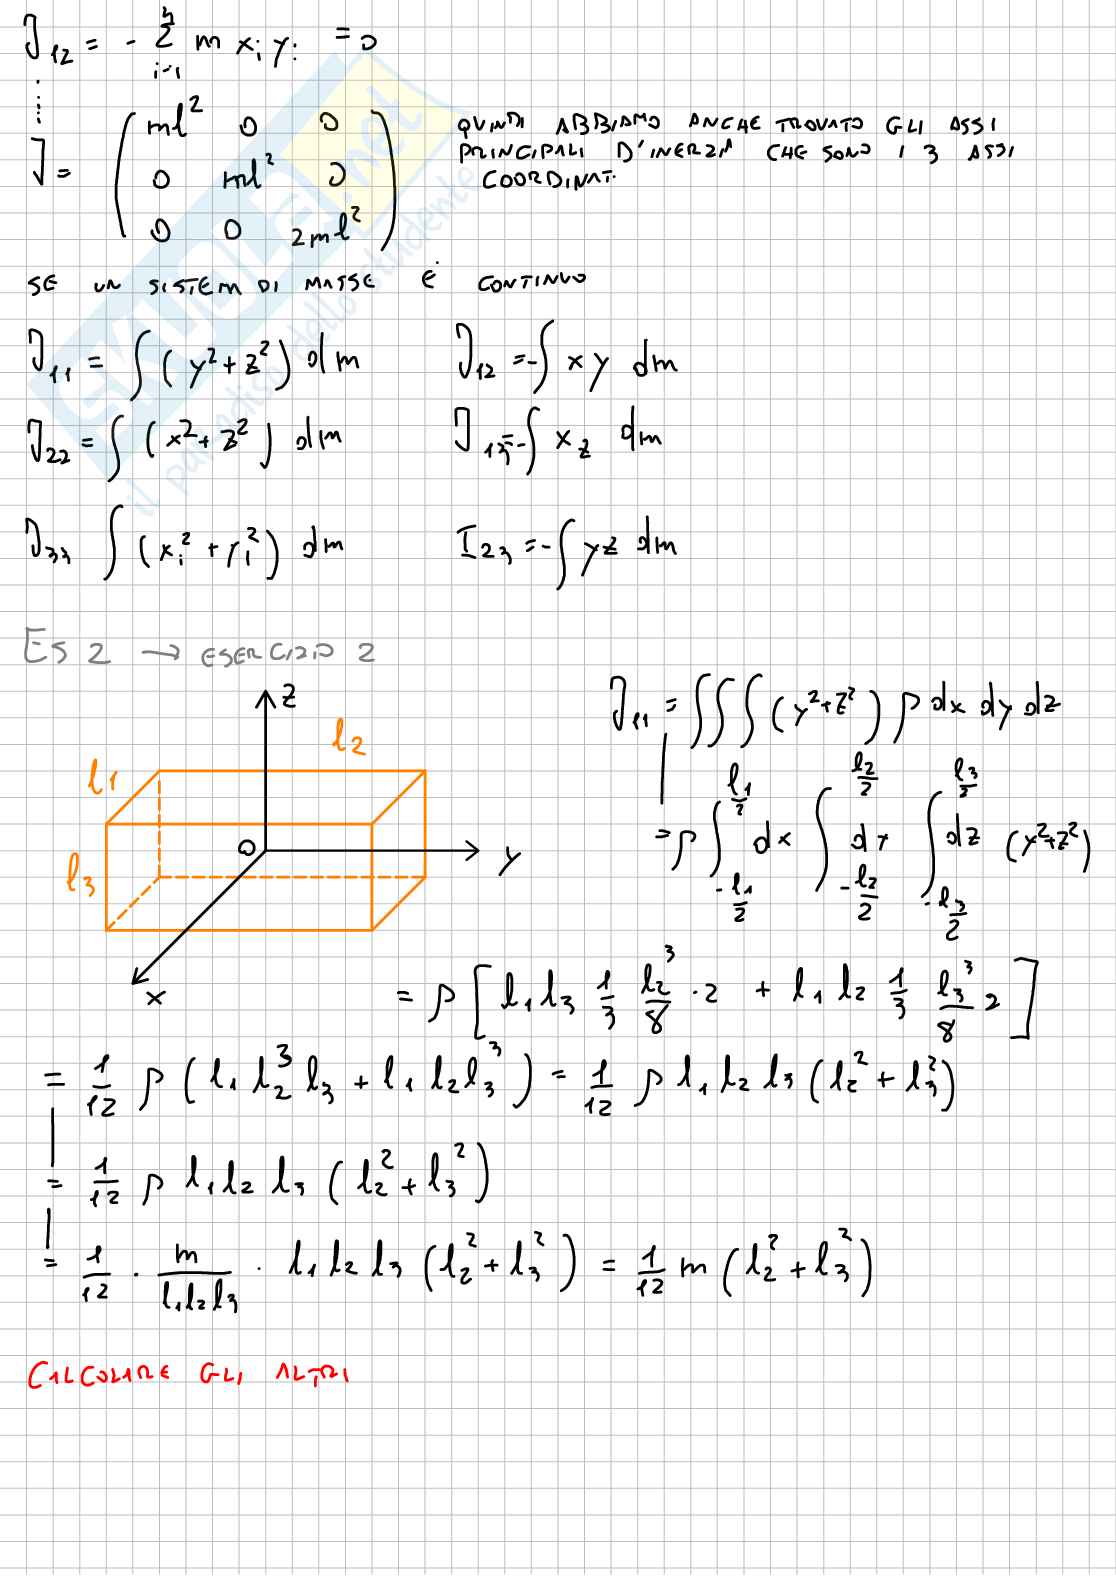 J₁₂ = - Σ⁴ᵢ₌₁ m xᵢ yᵢ = 0
J = ( ml² 0 0
0 ml² 0
0 0 2ml² )
QUINDI ABBIAMO ANCHE TROVATO GLI ASSI
PRINCIPALI D'INERZIA CHE SONO I 3 ASSI
COORDINATI
SE UN SISTEM DI MASSE È CONTINUO
J₁₁ = ∫ (y² + z²) dm J₁₂ = -∫ x y dm
J₂₂ = ∫ (x² + z²) dm J₁₃ = -∫ x z dm
J₃₃ ∫ (xᵢ² + yᵢ²) dm I₂₃ = -∫ yz dm
ES 2 → ESERCIZIO 2
z
l₂
l₁
l₃
O
y
x
J₁₁ = ∫∫∫ (y² + z²) ρ dx dy dz
= ρ ∫_{-l₁/2}^{l₁/2} dx ∫_{-l₂/2}^{l₂/2} dy ∫_{-l₃/2}^{l₃/2} dz (y² + z²)
= ρ [ l₁ l₃ 1/3 l₂³/8 · 2 + l₁ l₂ 1/3 l₃³/8 2 ]
= 1/12 ρ ( l₁ l₂³ l₃ + l₁ l₂ l₃³ ) = 1/12 ρ l₁ l₂ l₃ ( l₂² + l₃² )
= 1/12 ρ l₁ l₂ l₃ ( l₂² + l₃² )
= 1/12 · m/(l₁l₂l₃) · l₁ l₂ l₃ ( l₂² + l₃² ) = 1/12 m ( l₂² + l₃² )
CALCOLARE GLI ALTRI
SKUOLA.net
il paradiso dello studente